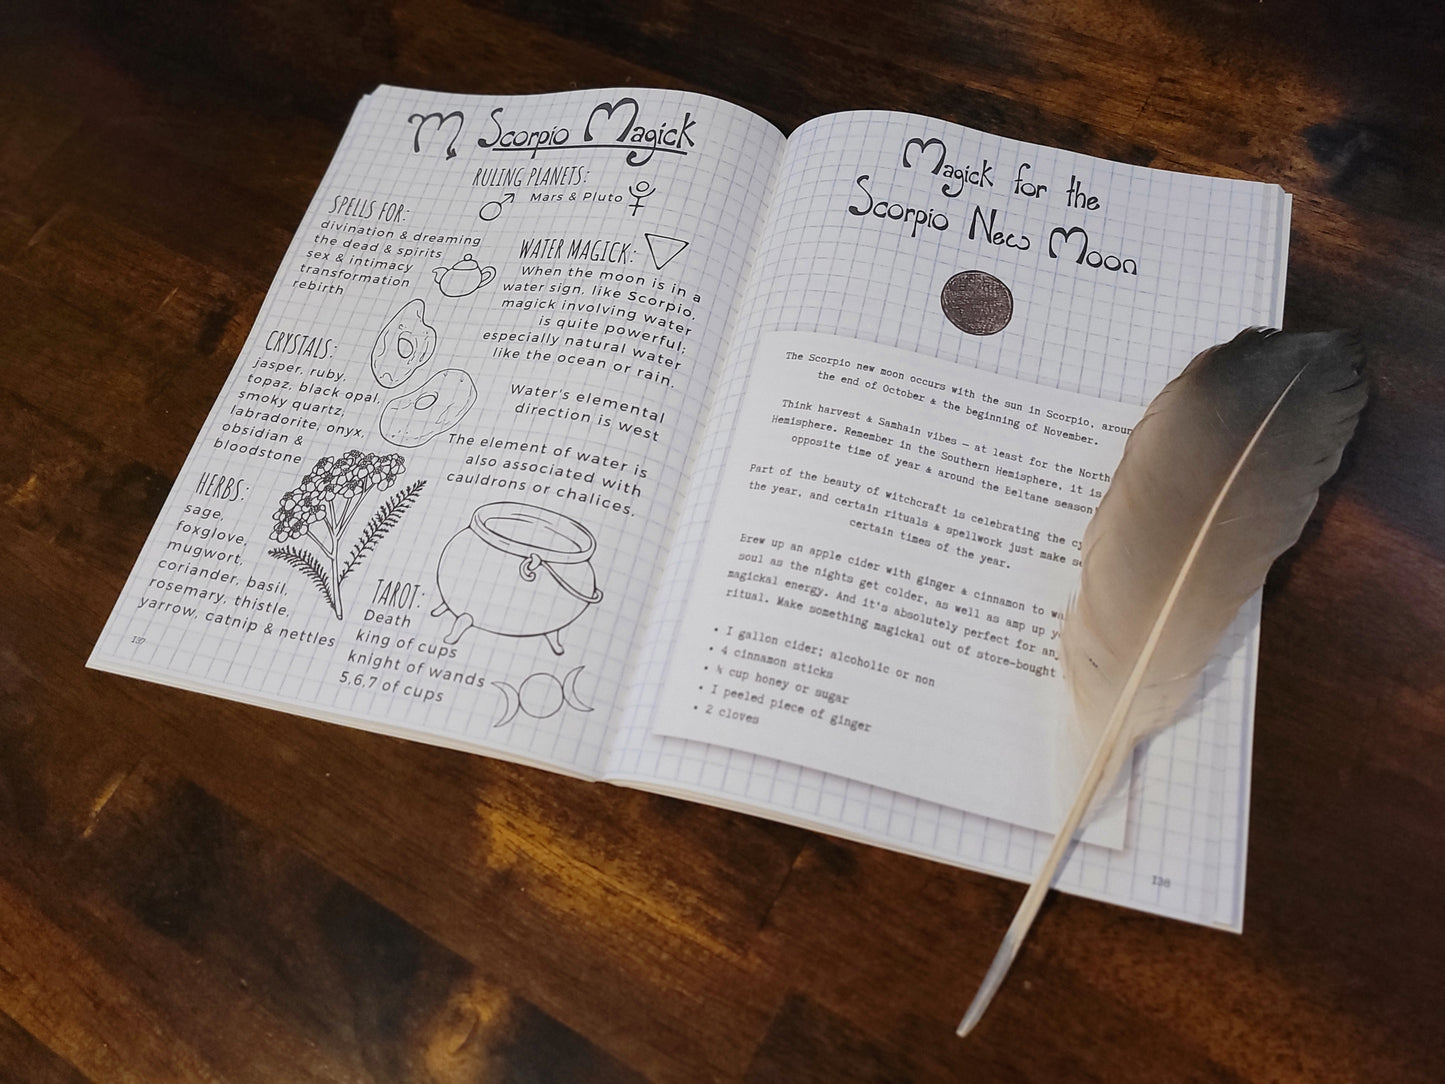 Scorpio Magick
RULING PLANETS:
Mars & Pluto
SPELLS FOR:
divination & dreaming
the dead & spirits
sex & intimacy
transformation
rebirth
WATER MAGICK:
When the moon is in a
water sign, like Scorpio,
magick involving water
is quite powerful;
especially natural water
like the ocean or rain.
Water's elemental
direction is west
The element of water is
also associated with
cauldrons or chalices.
CRYSTALS:
jasper, ruby,
topaz, black opal,
smoky quartz,
labradorite, onyx,
obsidian &
bloodstone
HERBS:
sage,
foxglove,
mugwort,
coriander, basil,
rosemary, thistle,
yarrow, catnip & nettles
TAROT:
Death
king of cups
knight of wands
5,6,7 of cups
137
Magick for the
Scorpio New Moon
The Scorpio new moon occurs with the sun in Scorpio,
the end of October & the beginning of November.
Think harvest & Samhain vibes — at least for the North
Hemisphere. Remember in the Southern Hemisphere, it is
opposite time of year & around the Beltane season
Part of the beauty of witchcraft is celebrating the
the year, and certain rituals & spellwork just make
certain times of the year.
Brew up an apple cider with ginger & cinnamon to
soul as the nights get colder, as well as amp up
magickal energy. And it's absolutely perfect for
ritual. Make something magickal out of store-bought
• 1 gallon cider; alcoholic or non
• 4 cinnamon sticks
• ¼ cup honey or sugar
• 1 peeled piece of ginger
• 2 cloves
138